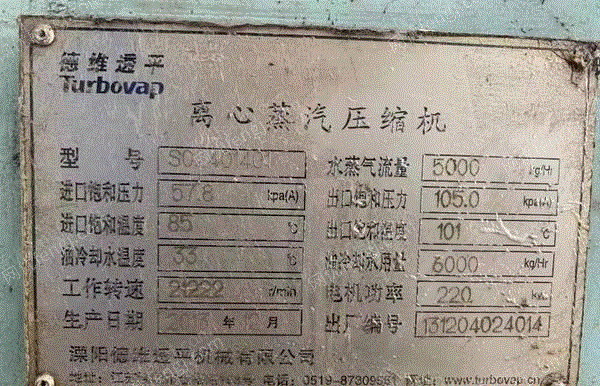 德维透平
Turbovap
离心蒸汽压缩机
型号 水蒸气流量 5000 kg/Hr
进口饱和压力 57.8 kpa(A) 出口饱和压力 105.0 kpa(A)
进口饱和温度 85 ℃ 出口饱和温度 101 ℃
油冷却水温度 33 ℃ 油冷却水用量 6000 kg/Hr
工作转速 21222 r/min 电机功率 220 kw
生产日期 年 月 出厂编号 131204024014
溧阳德维透平机械有限公司
电话: 0519-87309661 www.turbovap.cn